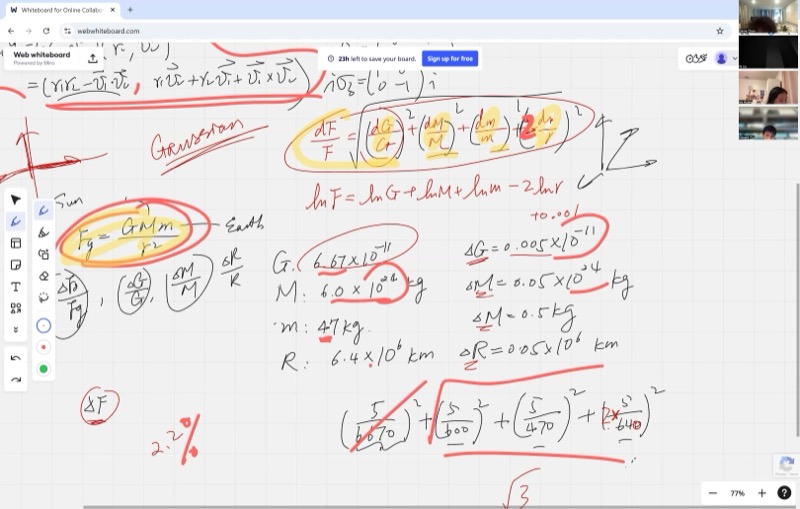 Whiteboard for Online Collabo
webwhiteboard.com
Web whiteboard
Powered by Miro
23h left to save your board.
Sign up for free
=(r₁r₂-v⃗₁·v⃗₂, r₁v⃗₂+r₂v⃗₁+v⃗₁×v⃗₂)
Gaussian
dF/F = √((dG/G)²+(dM/M)²+(dm/m)²+(2dr/r)²)
lnF=lnG+lnM+lnm-2lnr
Sun
Fg=GMm/r²
Earth
ΔF/Fg, (ΔG/G), (ΔM/M) ΔR/R
±0.001
G: 6.67×10⁻¹¹
ΔG=0.005×10⁻¹¹
M: 6.0×10²⁴ kg
ΔM=0.05×10²⁴ kg
m: 47kg.
ΔM=0.5kg
R: 6.4×10⁶ km
ΔR=0.05×10⁶ km
ΔF
2.2%
(5/6670)²+(5/600)²+(5/470)²+(2×5/640)²
√3
77%